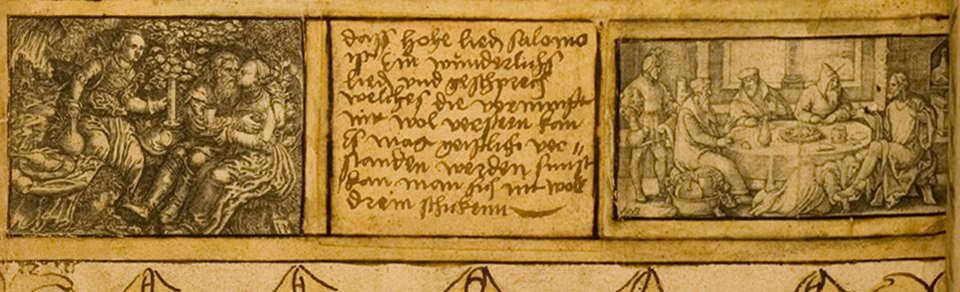 dass hohe lied salomo
ist ein wunderlichs
lied und gesprech
welches die vernunfft
nit wol versten kan
Es mag geistlich ver=
standen werden sunst
kan man sich nit woll
drein schicken